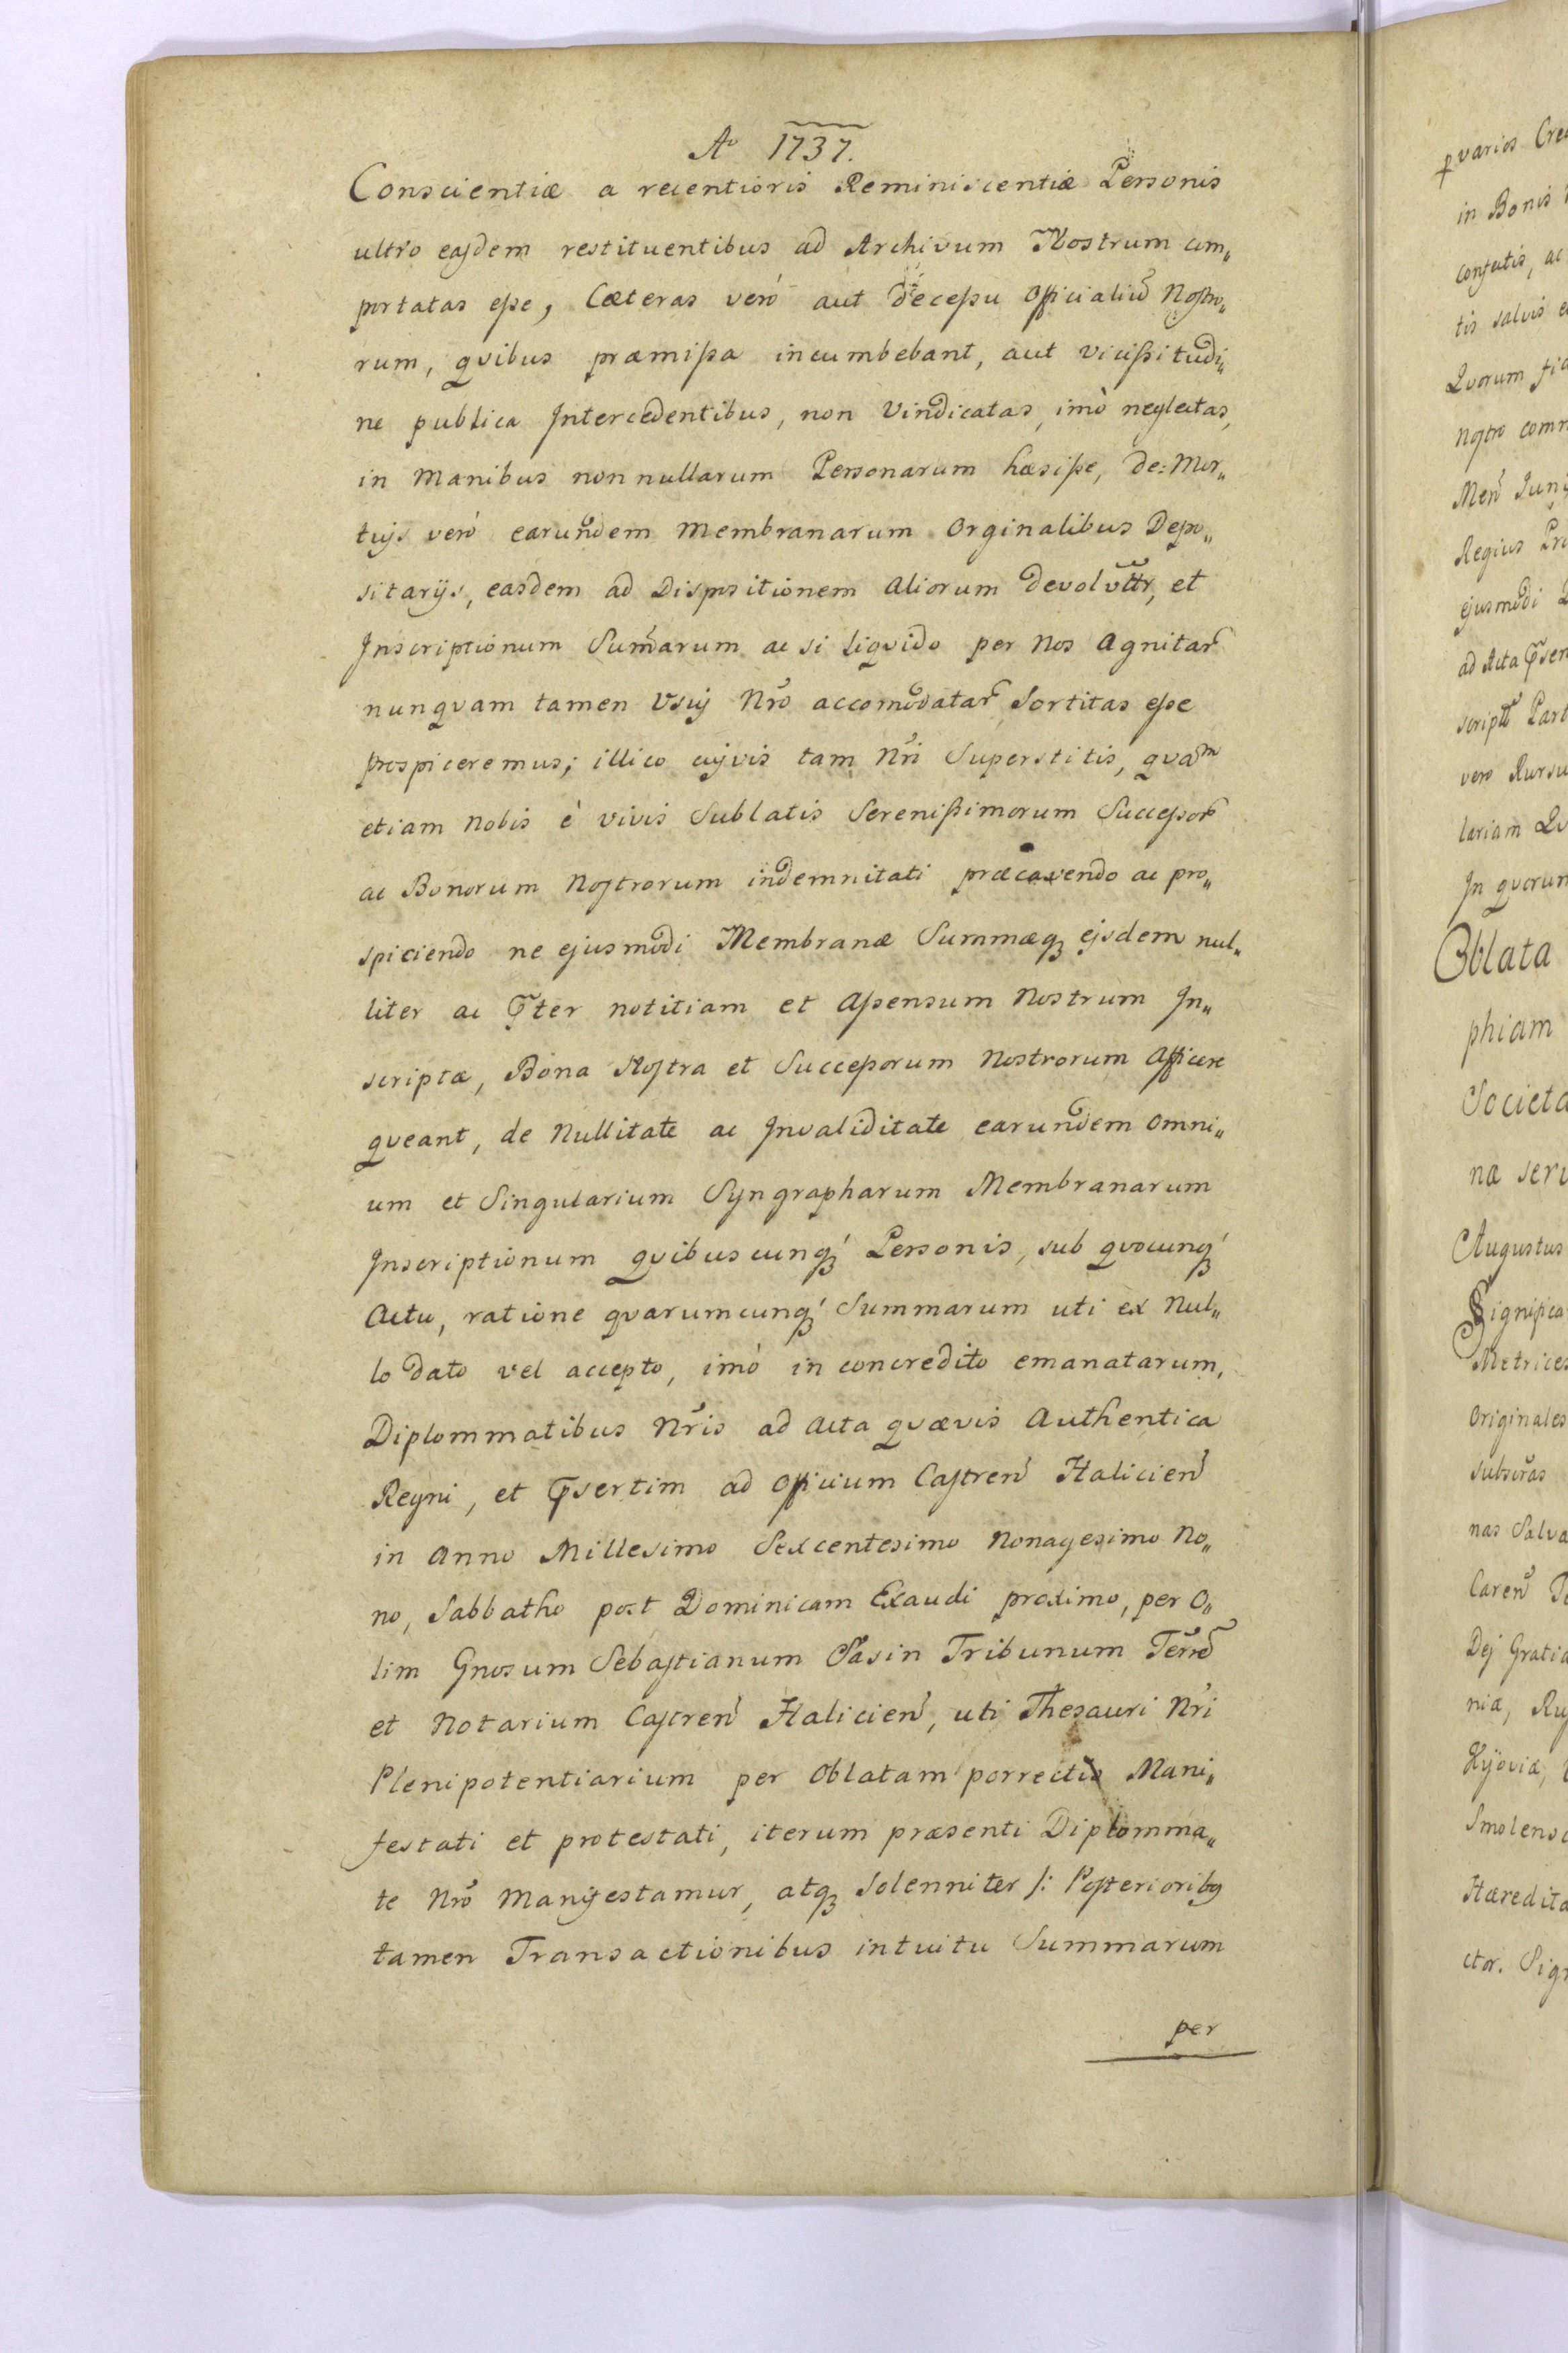 Ao 1737.
Conscientiæ a recentioris Reminiscentiæ Personis
ultro easdem restituentibus ad Archivum Nostrum com„
portatas esse, Cæteras verò aut decessu Officialiũ Nostro„
rum, qvibus præmissa incumbebant, aut vicissitudi„
ne publica Intercedentibus, non vindicatas, imò neglectas,
in Manibus nonnullarum Personarum hæsisse, de: Mor„
tuis verò earundem Membranarum Orginalibus Depo„
sitarijs, easdem ad Dispositionem Aliorum devolvttr, et
Inscriptionum Sum̃arum ac si liqvido per Nos Agnitar̃
nunqvam tamen Usuj Nr̃o accomodatar̃ Sortitas esse
prospiceremus; illico cujvis tam Nr̃i Superstitis, qvam
etiam Nobis è vivis Sublatis Serenissimorum Successor̃
ac Bonorum Nostrorum indemnitati præcavendo ac pro„
spiciendo ne ejusmodi Membranæ Summæq; ejsdem nul„
liter ac p̃ter notitiam et Assensum Nostrum In„
scriptæ, Bona Nostra et Successorum Nostrorum Afficere
qveant, de Nullitate ac Invaliditate earundem Omni„
um et Singularium Syngrapharum Membranarum
Inscriptionum qvibuscunq; Personis, sub qvocunq;
Actu, ratione qvarumcunq; Summarum uti ex Nul„
lo dato vel accepto, imò in concredito emanatarum,
Diplommatibus Nr̃is ad Acta qvævis Authentica
Regni, et p̃sertim ad Officium Castreñ Halicieñ
in Anno Millesimo Sexcentesimo Nonagesimo No„
no, Sabbatho post Dominicam Exaudi proximo, per O„
lim Gnosum Sebastianum Sasin Tribunum Terr̃
et Notarium Castreñ Halicieñ, uti Thesauri Nr̃i
Plenipotentiarium per Oblatam porrectis Mani„
festati et protestati, iterum præsenti Diplomma„
te Nr̃o Manifestamur, atq; Solenniter /: Posterioribq
tamen Transactionibus intuitu Summarum
per
varios
in Bonis
ac
tis salvis
Qvorum
Nostro
Regius
ejusmodi
ad Acta
vero
In qvorum
Oblata
phiam
næ
Augustus
Originales
nas
Dej Gratia
niæ,
Kijoviæ,
ctor.